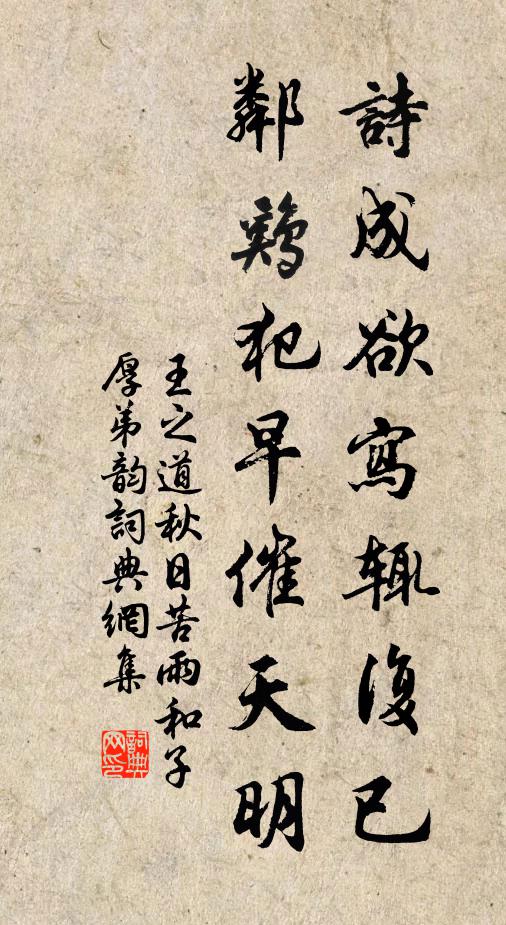 詩成欲寫輙復已
鄰鷄犯早催天明
王之道秋日苦雨和子
厚弟韵詞典網集
詞典
网印